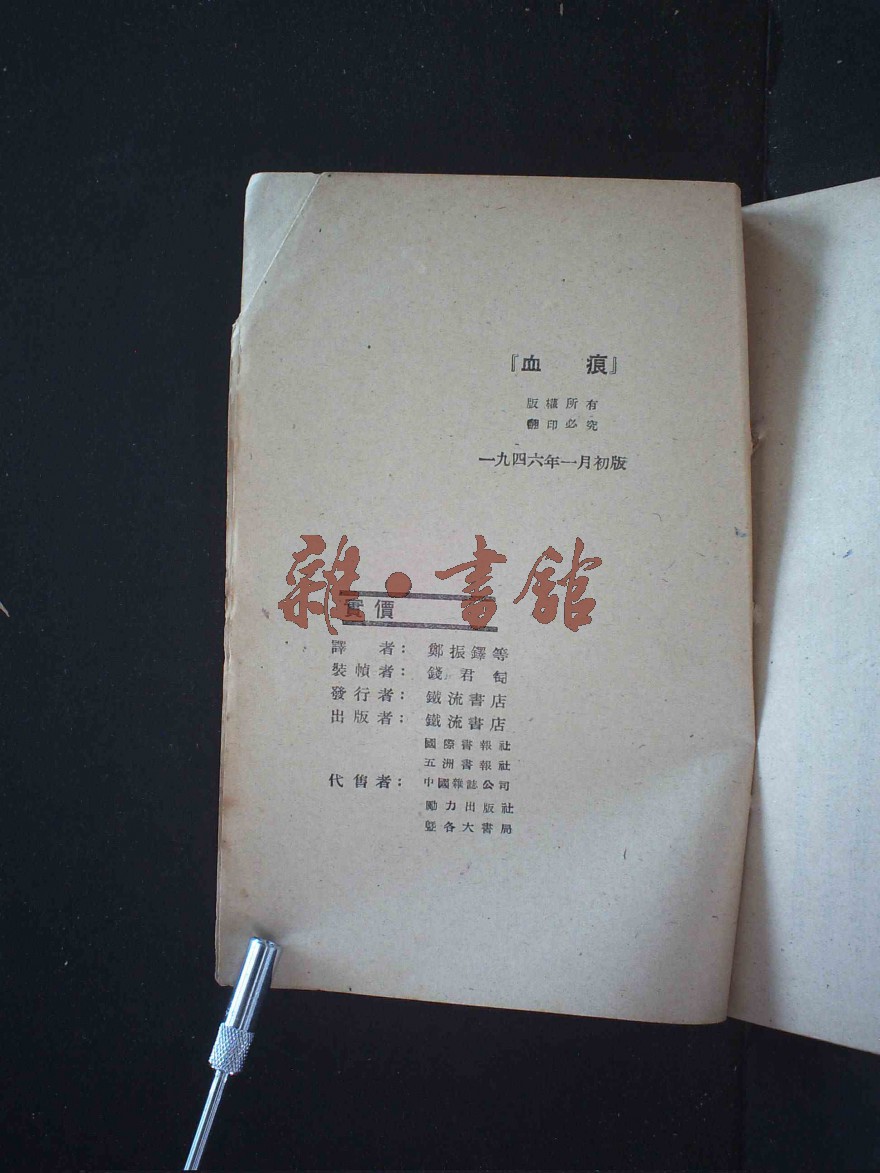 『血痕』
版權所有
翻印必究
一九四六年一月初版
雜·書館
實價
譯者：鄭振鐸等
裝幀者：錢君匋
發行者：鐵流書店
出版者：鐵流書店
國際書報社
五洲書報社
代售者：中國雜誌公司
勵力出版社
暨各大書局